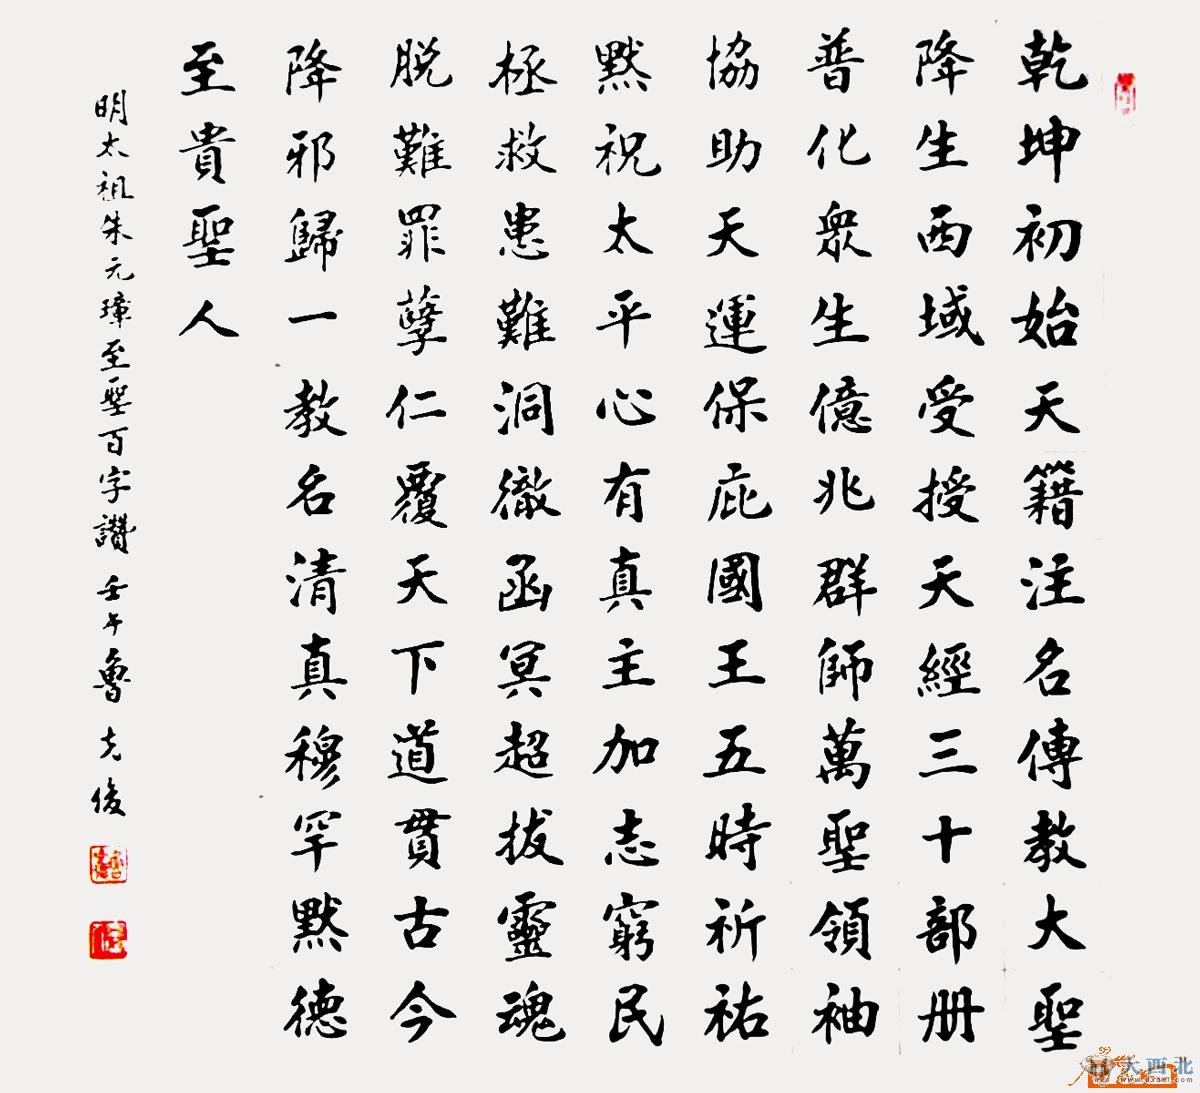 乾坤初始天籍注名傳教大聖
降生西域受授天經三十部册
普化眾生億兆群師萬聖領袖
協助天運保庇國王五時祈祐
默祝太平心有真主加志窮民
極救患難洞徹函冥超拔靈魂
脱難罪孽仁覆天下道貫古今
降邪歸一教名清真穆罕默德
至貴聖人
明太祖朱元璋至聖百字讚 壬午魯克俊
大西北